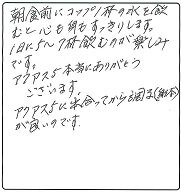 朝食前にコップ1杯の水を飲
むと心も体もすっきりします。
1日に5〜7杯飲むのが楽しみ
です。
アクアス5本当にありがとう
ございます。
アクアス5に出合ってから
が良いのです。